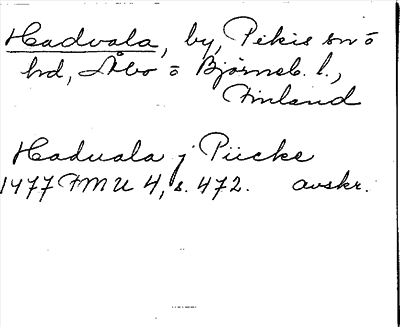 Hadvala, by, Pikis sn o
hd, Åbo o Björneb. l.,
Finland
Hadvala j Piicke
1477 FMU 4, s. 472. avskr.